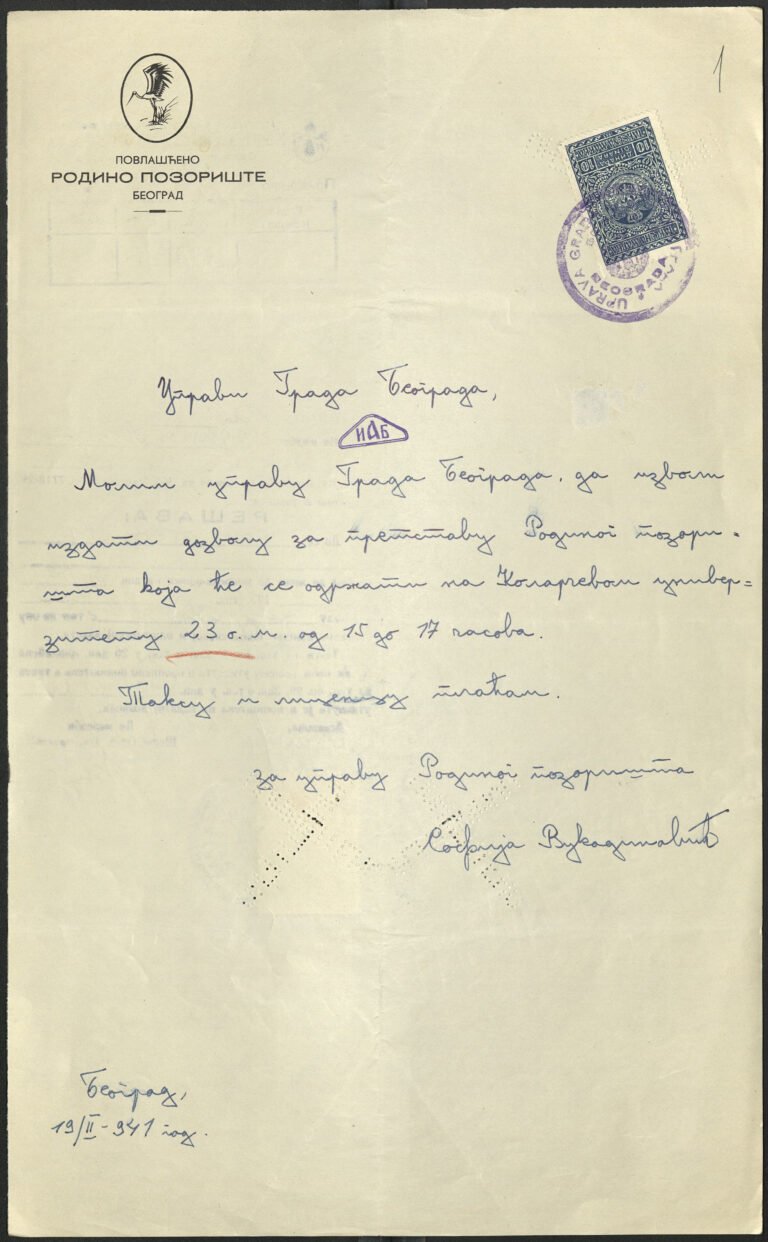 1
ПОВЛАШЋЕНО
РОДИНО ПОЗОРИШТЕ
БЕОГРАД
10 10
UPRAVA GRAD
BEOGRADA
Управи Града Београда,
ИАБ
Молим управу Града Београда, да изволи
издати дозволу за претставу Родиног позори=
шта која ће се одржати на Коларчевом универ=
зитету 23 о. м. од 15 до 17 часова.
Таксу и лиценцу плаћам.
за управу Родиног позоришта
Софија Вукадиновић
Београд,
19/II-941 год.